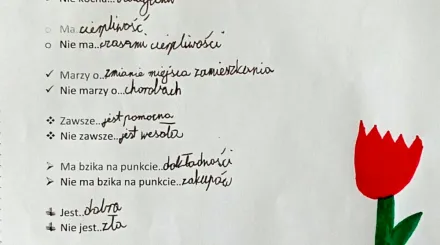 Nie kocha..
Ma..cierpliwość
Nie ma..czasami cierpliwości
Marzy o..zmianie miejsca zamieszkania
Nie marzy o...chorobach
Zawsze..jest pomocna
Nie zawsze..jest wesoła
Ma bzika na punkcie..dokładności
Nie ma bzika na punkcie..zakupów
Jest..dobra
Nie jest..zła